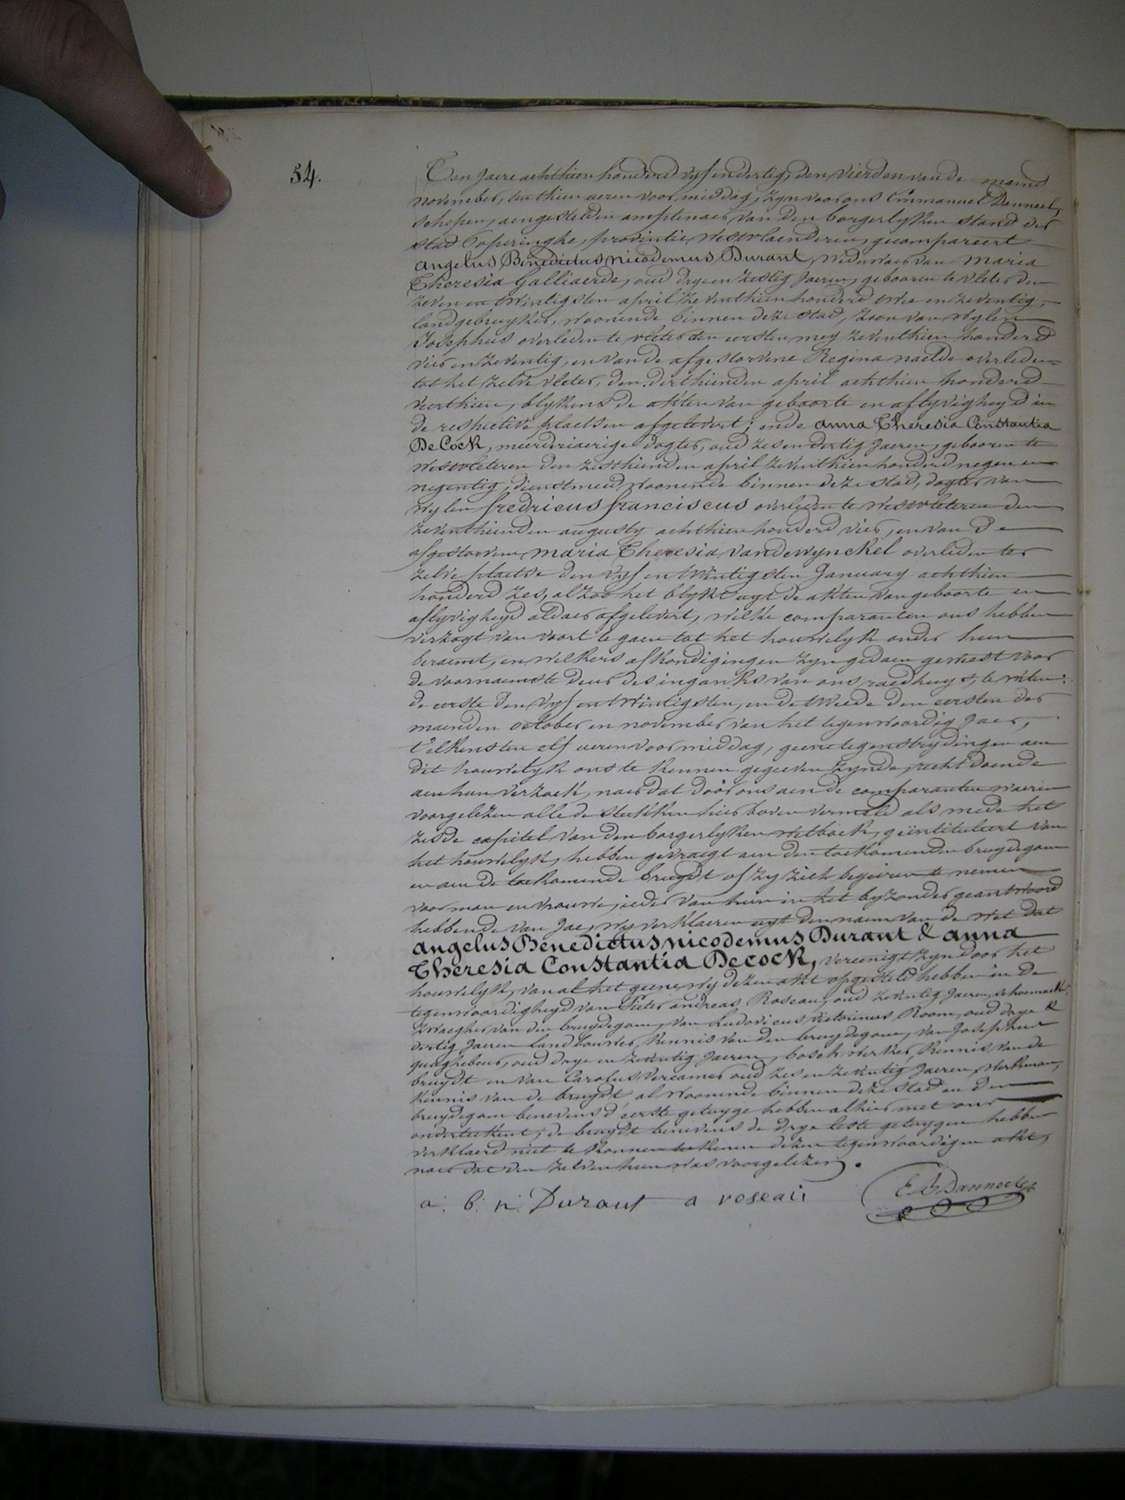 54.
Den jaere achthien honderd vyf en dertig, den vierden van de maend
november, ten thien ueren voor middag, zyn voor ons Emmanuel Danneel,
schepen, aengestelden amptenaer van den borgerlyken stand der
stad Poperinghe, provintie Westvlaenderen, gecompareert
angelus Benedictus nicodemus Durant, weduwaer van maria
Theresia Galliaerde, oud drye en zestig Jaeren, gebooren te vleter den
zeven en twintigsten april zeventhien honderd twee en zeventig,
landgebruyker, woonende binnen deze stad, zoon van wylen
Josephus overleden te vleter den eersten mey zeventhien honderd
vier en zeventig, en van de afgestorvene Regina naelde overleden
tot het zelve vleter, den derthienden april achthien honderd
veerthien, blykens de akten van geboorte en aflyvigheyd in
de respective plaetsen afgelevert; ende anna Theresia Constantia
De Cock, meerderjaerige dogter, oud zes en dertig Jaeren, gebooren te
Westvleteren den zesthienden april zeventhien honderd negen en
negentig, dienstmeid, woonende binnen deze stad, dogter van
wylen fredricus franciscus overleden te Westvleteren den
zeventhienden augusty achthien honderd vier, en van de
afgestorvene maria Theresia vandewynckel overleden ter
zelve plaetse den vyf en twintigsten January achthien
honderd zes, alzoo het blykt uyt de akten van geboorte en
aflyvigheyd aldaer afgelevert, welke comparanten ons hebben
verzogt van voort te gaen tot het houwelyk onder hun
beraemt, en welkers afkondigingen zyn gedaen geweest voor
de voornaemste deur des ingankx van ons raedhuys, te weten:
de eerste den vyf en twintigsten, en de tweede den eersten der
maenden october en november van het tegenwoordig Jaer,
telkens ten elf ueren voor middag, geene tegenstrydingen aen
dit houwelyk ons te kennen gegeven zynde, recht doende
aen hun verzoek, naer dat door ons aen de comparanten waeren
voorgelezen alle de stukken hier boven vermeld als mede het
zesde capitel van den borgerlyken wetboek, geintituleert van
het houwelyk, hebben gevraegt aen den toekomenden bruydegom
en aen de toekomende bruydt of zy zich begeiren te nemen
voor man en vrouwe, ieder van hun in het byzonder geantwoord
hebbende van Jae, wy verklaeren uyt den naem van de wet dat
angelus Benedictus nicodemus Durant & anna
Theresia Constantia Decock, vereenigt zyn door het
houwelyk, van al het geene wy dezen akt opgesteld hebben in de
tegenwoordigheyd van Pieter andreas Roseau, oud zeventig Jaeren, schoenmaeker
zwaegher van den bruydegom, van Ludovicus Victorinus Room, oud drye &
dertig Jaeren landbouwer, kennis van den bruydegom, van Josephus
queghebeur, oud drye en zeventig Jaeren, bosch werker, kennis van de
bruydt en van Carolus Vercamer oud zes en zeventig Jaeren, werkman,
kennis van de bruydt, al woonende binnen deze stad en den
bruydegom benevens d'eerste getuyge hebben alhier met ons
onderteekent; de bruydt benevens de drye leste getuygen hebben
verklaerd niet te konnen teekenen dezen tegenwoordigen akt,
naer dat den zelven hun was voorgelezen.
a: b: n: Durant a roseau E. Danneel